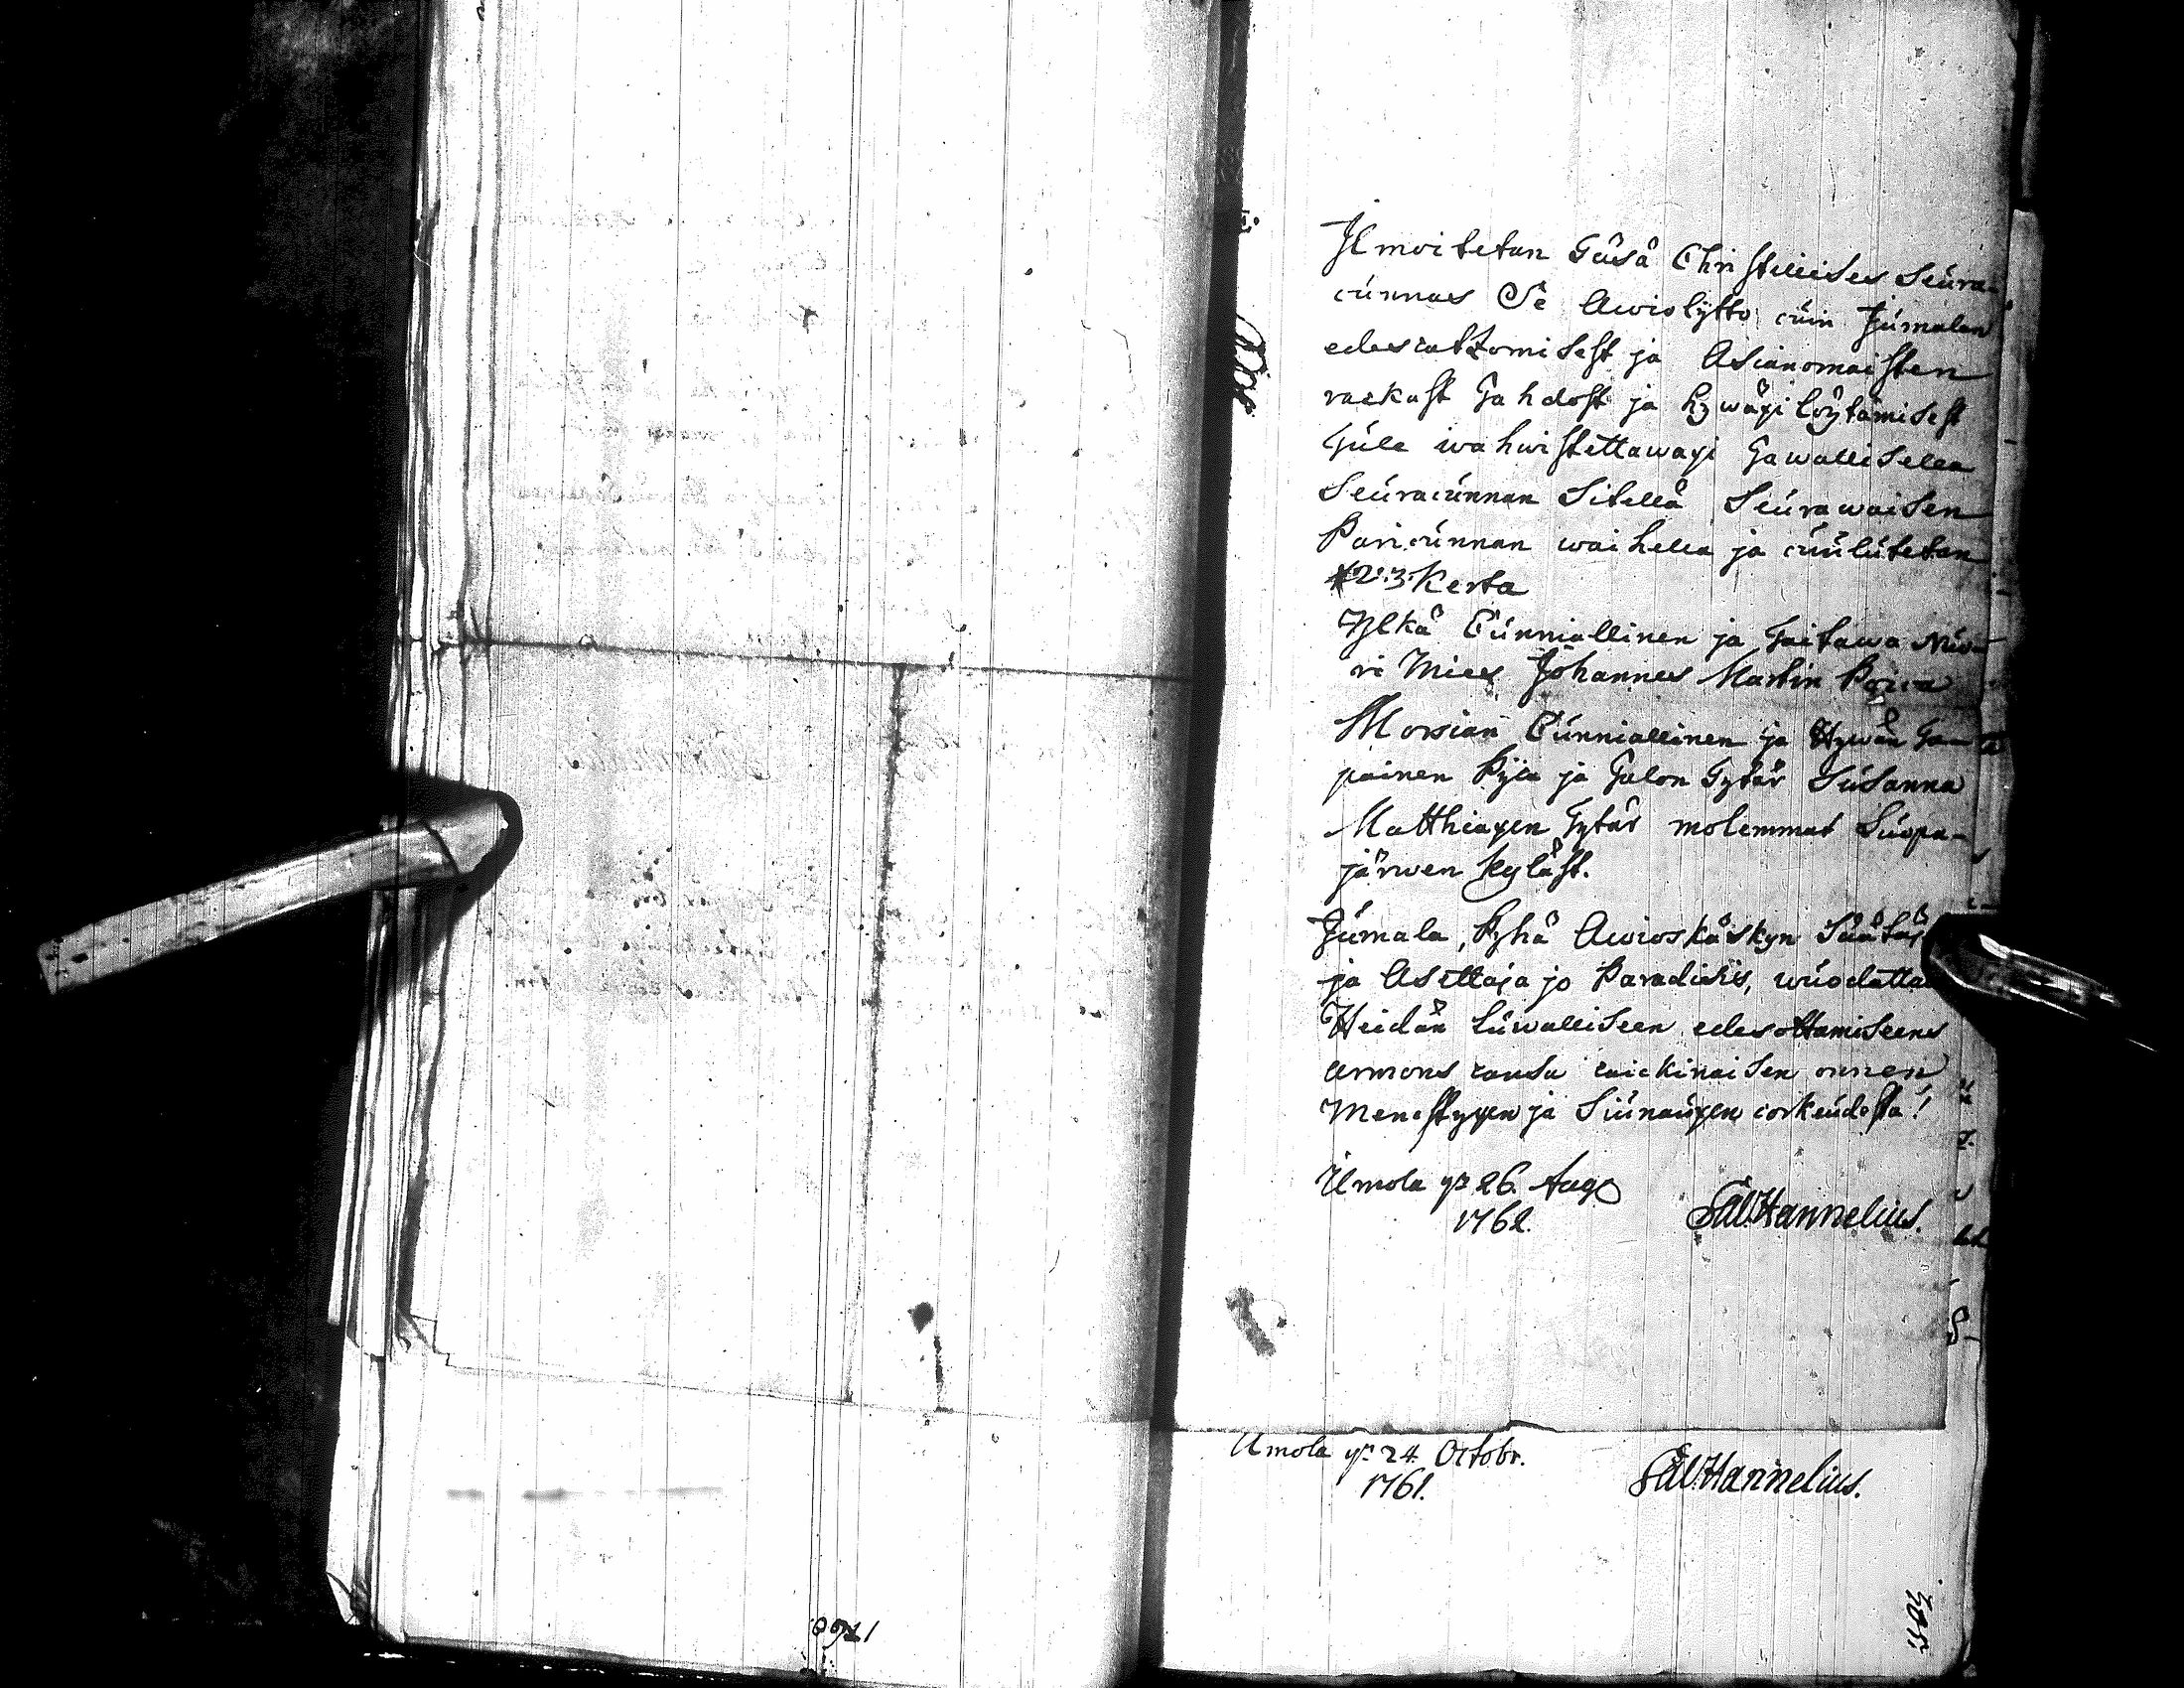 Ilmoitetan Täsä Christillises Seura-
cunnas Se Awiolijtto cuin Jumalan
edescatzomisest ja Asianomaisten
raskast Tahdost ja hywäxi löytämisest
Tule wahwistettawaxi Tawallisella
Seuracunnan Sitellä Seurawaisen
Paricunnan waihella ja cuulutetan
2. 3. Kerta
Ylkä Cunniallinen ja Taitawa Nuo-
ri Mies Johannes Martin Poica
Morsian Cunniallinen ja Hywän Ta-
painen Pijca ja Talon Tytär Susanna
Matthiaxen Tytär molemmat Suopa-
järwen Kyläst.
Jumala, Pyhä Awioskäskyn Säätäj
ja Asettaja jo Paradisis, wuodatta
Heidän Luwalliseen edesottamiseens
armons cansa caickinaisen onnen
Menestyxen ja Siunauxen corkeudesta!
Umola yp 26. Aug
1762.
Sal. Hannelius.
Umola yp. 24. Octobr.
1761.
Sal. Hannelius.
1760